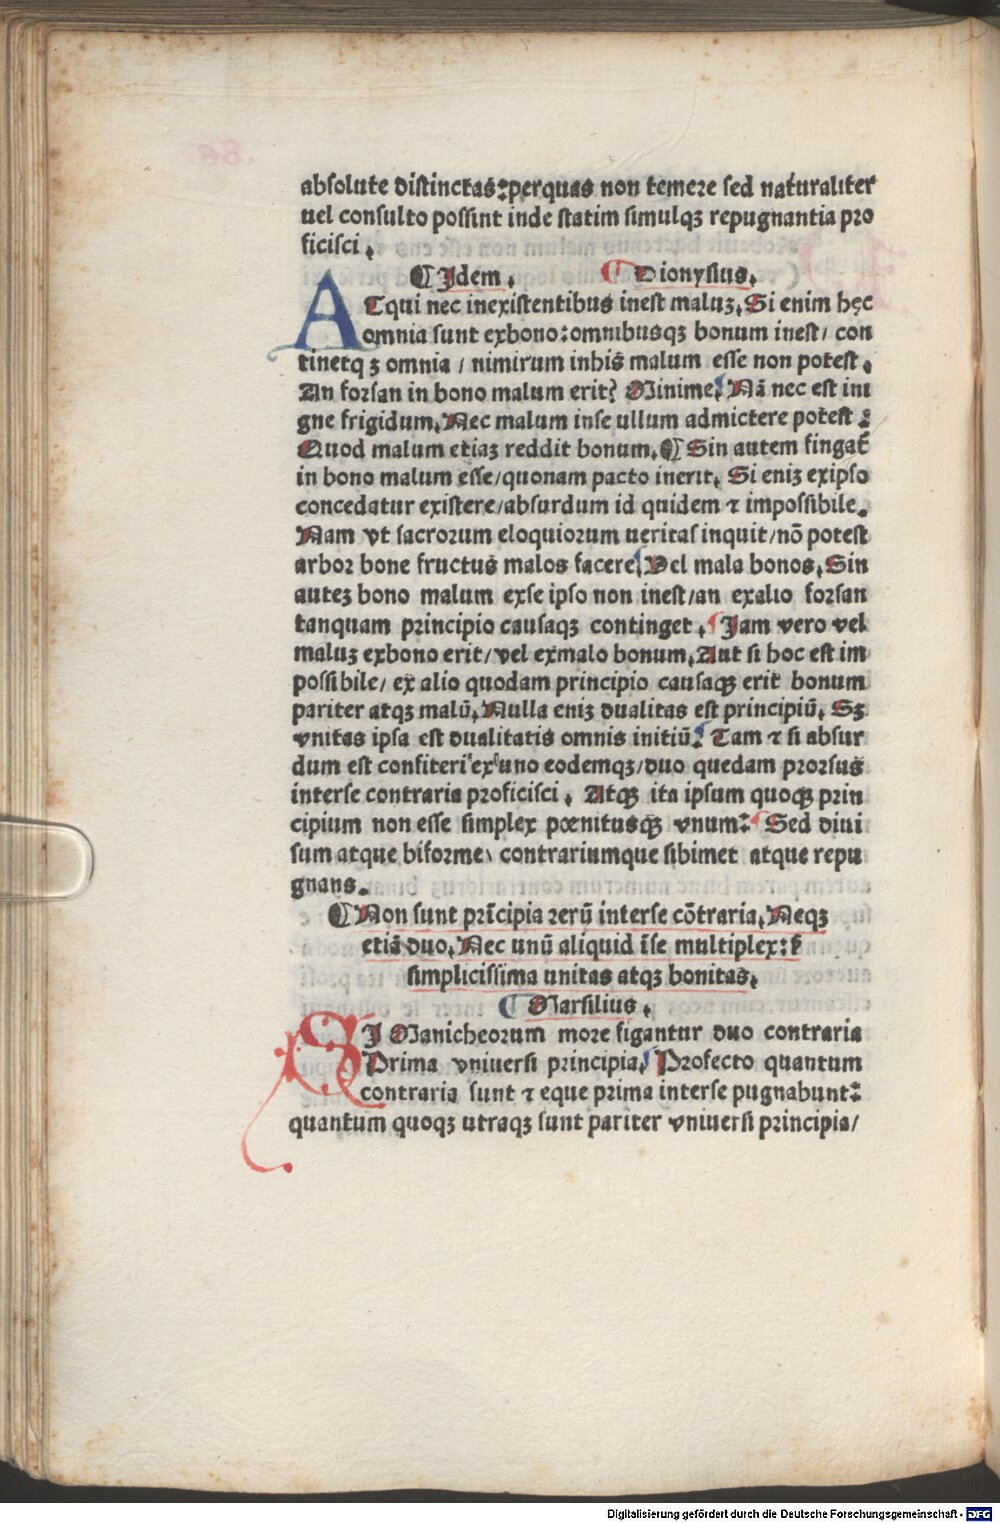 absolute distinctas: perquas non temere sed naturaliter
uel consulto possint inde statim simulqꝫ repugnantia pro
ficisci.
¶ Idem. ¶ Dionysius.
ATqui nec inexistentibus inest maluꝫ. Si enim hęc
omnia sunt exbono: omnibusqꝫ bonum inest/ con
tinetqꝫ omnia/ nimirum inhis malum esse non potest.
An forsan in bono malum erit? Minime. Nā nec est in i
gne frigidum. Nec malum inse ullum admictere potest:
Quod malum etiaꝫ reddit bonum. ¶ Sin autem fingat᷑
in bono malum esse/ quonam pacto inerit. Si eniꝫ exipso
concedatur existere/ absurdum id quidem ⁊ impossibile.
Nam vt sacrorum eloquiorum ueritas inquit/ nō potest
arbor bone fructus malos facere. Uel mala bonos. Sin
auteꝫ bono malum exse ipso non inest/ an exalio forsan
tanquam principio causaqꝫ continget. Jam vero vel
maluꝫ exbono erit/ vel exmalo bonum. Aut si hoc est im
possibile/ ex alio quodam principio causaqꝫ erit bonum
pariter atqꝫ malū. Nulla eniꝫ dualitas est principiū. Sꝫ
vnitas ipsa est dualitatis omnis initiū. Tam ⁊ si absur
dum est confiteri ex uno eodemqꝫ/ duo quedam prorsus
interse contraria proficisci. Atqꝫ ita ipsum quoqꝫ prin
cipium non esse simplex pœnitusqꝫ vnum: Sed diui
sum atque biforme, contrariumque sibimet atque repu
gnans.
¶ Non sunt prīcipia rerū interse cōtraria. Neqꝫ
etiā duo. Nec unū aliquid īse multiplex: ꝫ
simplicissima unitas atqꝫ bonitas.
¶ Marsilius.
SI Manicheorum more figantur duo contraria
Prima vniuersi principia. Profecto quantum
contraria sunt ⁊ eque prima interse pugnabunt:
quantum quoqꝫ utraqꝫ sunt pariter vniuersi principia/
Digitalisierung gefördert durch die Deutsche Forschungsgemeinschaft - DFG